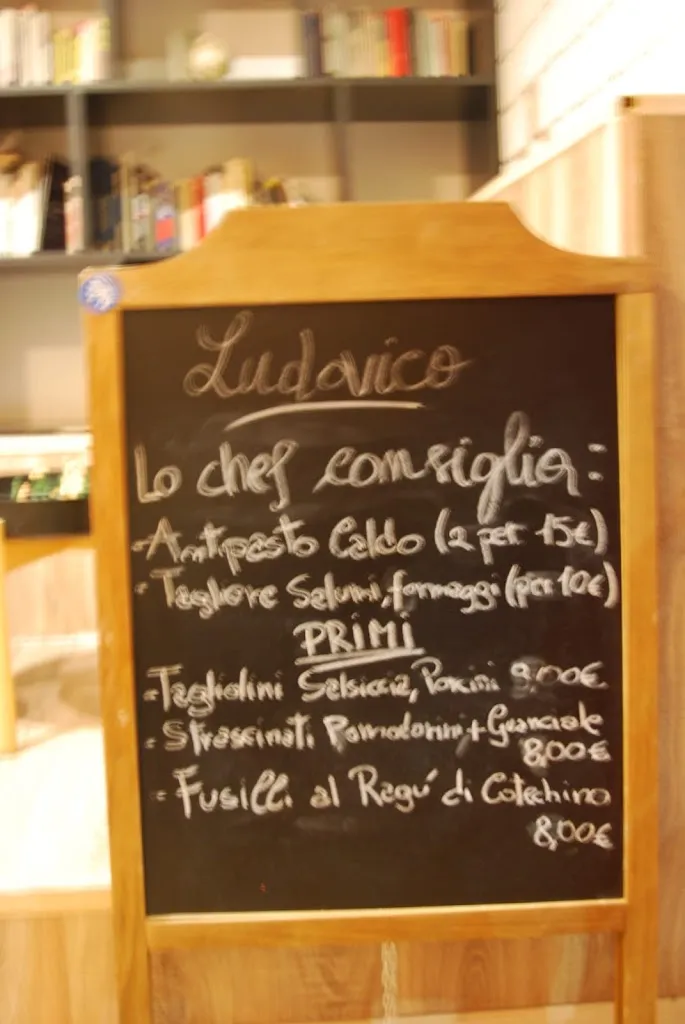 Ludovico
Lo chef consiglia:
-Antipasto Caldo (2 per 15€)
-Tagliere Salumi, formaggi (per 10€)
PRIMI
-Tagliolini Salsiccia, Porcini 9.00€
-Strascinati Pomodorini+Guanciale
8,00€
-Fusilli al Ragú di Cotechino
8,00€